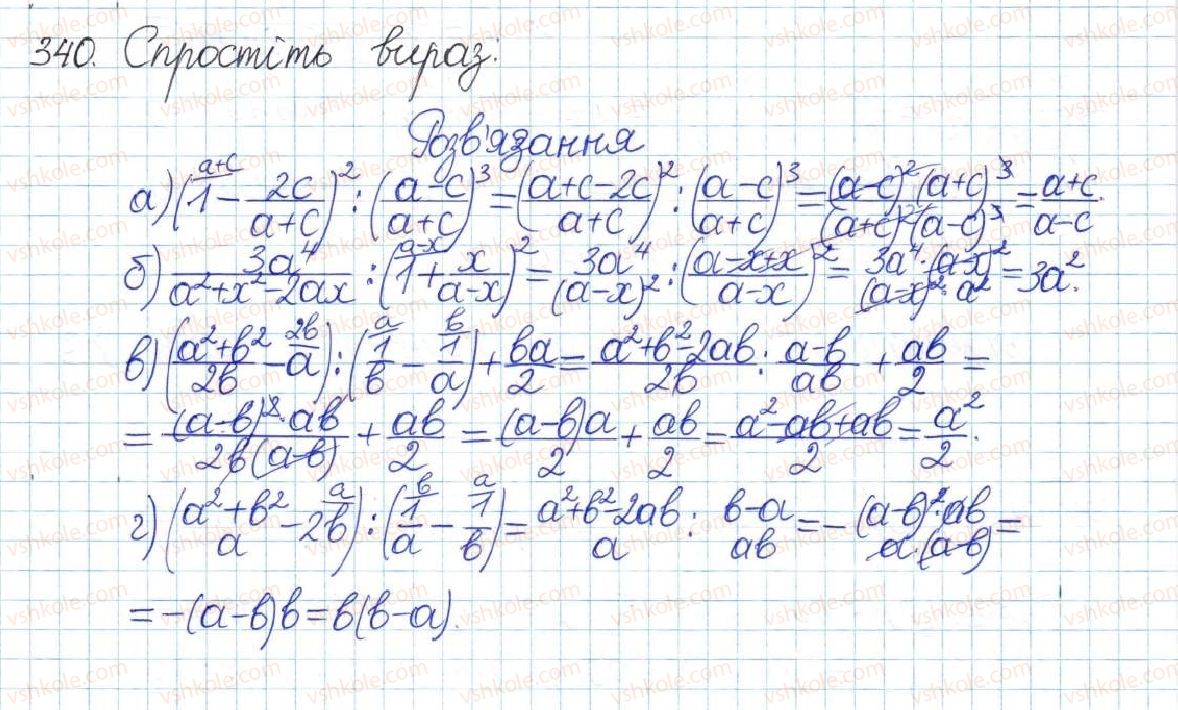 340. Спростіть вираз:
Розв'язання
а) (1^{a+c} - 2c/(a+c))² : ((a-c)/(a+c))³ = ((a+c-2c)/(a+c))² : ((a-c)/(a+c))³ = (a-c)²(a+c)³/((a+c)²(a-c)³) = (a+c)/(a-c).
б) 3a⁴/(a²+x²-2ax) : (1^{a-x} + x/(a-x))² = 3a⁴/(a-x)² : ((a-x+x)/(a-x))² = 3a⁴·(a-x)²/((a-x)²·a²) = 3a².
в) ((a²+b²)/2b - a^{2b}) : (1^{a}/b - 1^{b}/a) + ba/2 = (a²+b²-2ab)/2b : (a-b)/ab + ab/2 =
= (a-b)²·ab/(2b(a-b)) + ab/2 = (a-b)a/2 + ab/2 = (a²-ab+ab)/2 = a²/2.
г) ((a²+b²)/a - 2b^{a}) : (1^{b}/a - 1^{a}/b) = (a²+b²-2ab)/a : (b-a)/ab = - (a-b)²·ab/(a·(a-b)) =
= -(a-b)b = b(b-a).
vshkole.com